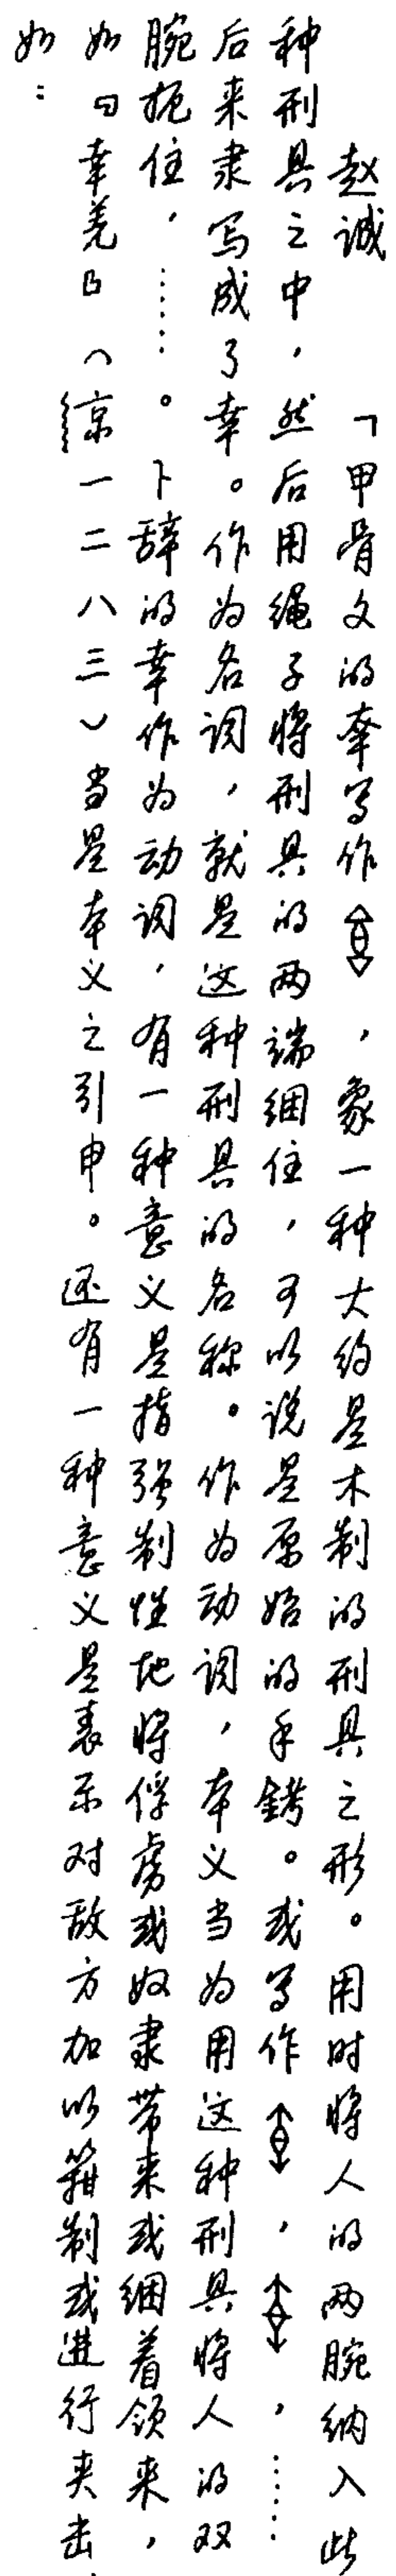 赵诚 「甲骨文的㚔写作，象一种大约是木制的刑具之形。用时将人的两腕纳入此
种刑具之中，然后用绳子将刑具的两端捆住，可以说是原始的手铐。或写作，，……
后来隶写成了幸。作为名词，就是这种刑具的名称。作为动词，本义当为用这种刑具将人的双
腕扼住，……。卜辞的幸作为动词，有一种意义是指强制性地将俘虏或奴隶带来或捆着领来，
如「幸羌」（京一二八三）当是本义之引申。还有一种意义是表示对敌方加以箝制或进行夹击，
如：